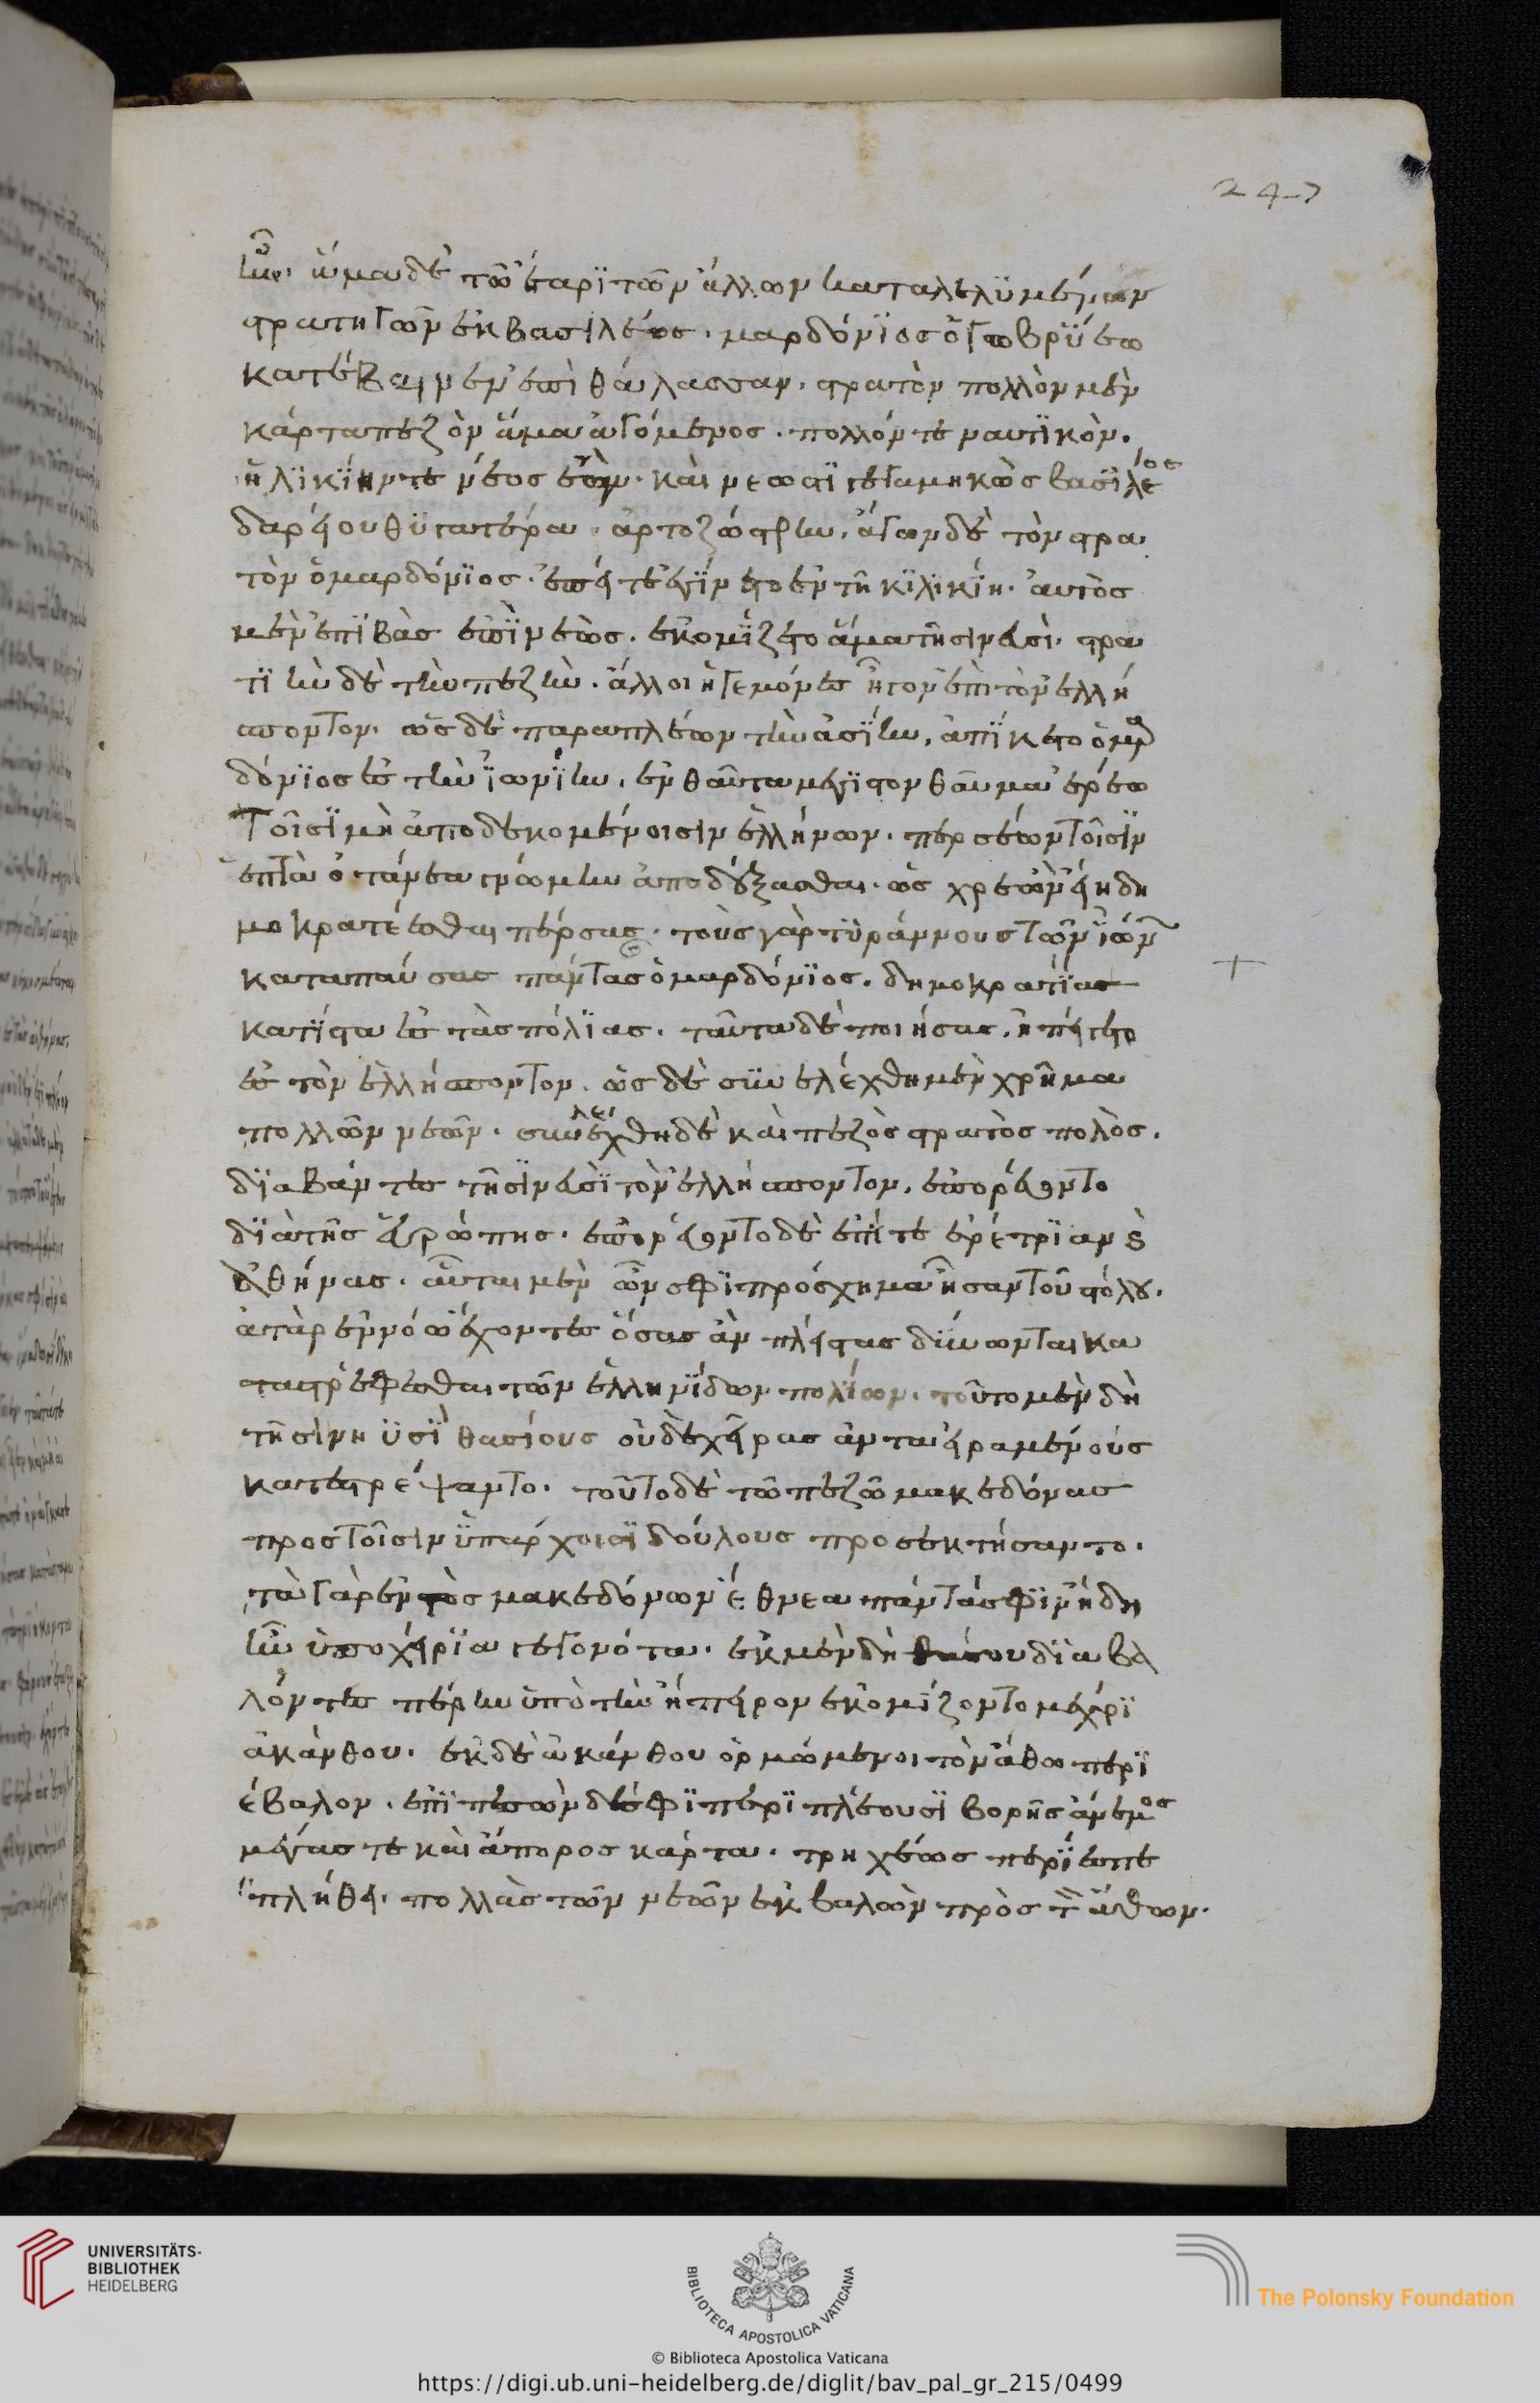 247
ἦν. ἅμα δὲ τῶ ἔαρι τῶν ἄλλων καταλελυμένων
στρατηγῶν ἐκ βασιλέος. μαρδόνιος ὁ γωβρύεω
κατέβαινεν ἐπὶ θάλασσαν. στρατὸν πολλὸν μὲν
κάρτα πεζὸν ἅμα ἀγόμενος. πολλόν τε ναυτικὸν.
ἡλικίην τε νέος ἐὼν. καὶ νεωστὶ γεγαμηκὼς βασιλέος
δαρείου θυγατέρα. ἀρτοζώστρην. ἄγων δὲ τὸν στρα
τὸν ὁ μαρδόνιος. ἐπεί τε ἐγίνετο ἐν τῆ κιλικίη. αὐτὸς
μὲν ἐπιβὰς ἐπὶ νεὸς. ἐκομίζετο ἅμα τῆσι νεσὶ. στρα
τιὴν δὲ τὴν πεζὴν. ἄλλοι ἡγεμόνες ἦγον ἐπὶ τὸν ἑλλή
σποντον. ὡς δὲ παραπλέων τὴν ἀσίην, ἀπίκετο ὁ μαρ
δόνιος ἐς τὴν ἰωνίην. ἐνθαῦτα μέγιστον θαῦμα ἐρέω
τοῖσι μὴ ἀποδεκομένοισιν ἑλλήνων. περσέων τοῖσιν
ἑπτὰ ὀτάνεα γνώμην ἀποδέξασθαι. ὡς χρεὼν εἴη δη
μοκρατέεσθαι πέρσας. τοὺς γὰρ τυράννους τῶν ἰώνων
καταπαύσας πάντας ὁ μαρδόνιος. δημοκρατίας
κατίστα ἐς τὰς πόλιας. ταῦτα δὲ ποιήσας. ἠπείγετο
ἐς τὸν ἑλλήσποντον. ὡς δὲ συνελέχθη μὲν χρῆμα
πολλῶν νεῶν. συνελέχθη δὲ καὶ πεζὸς στρατὸς πολὸς.
διαβάντες τῆσι νεσὶ τὸν ἑλλήσποντον. ἐπορεύοντο
διὰ τῆς εὐρώπης. ἐπορεύοντο δὲ ἐπί τε ἐρέτριαν καὶ
ἀθήνας. αὗται μὲν ὦν σφι πρόσχημα ἦσαν τοῦ στόλου.
ἀτὰρ ἐν νόω ἔχοντες ὅσας ἂν πλείστας δύνωνται κα
ταστρέφεσθαι τῶν ἑλληνίδων πολίων. τοῦτο μὲν δὴ
τῆσι νηυσὶ θασίους οὐδὲ χεῖρας ἀνταειραμένους
κατεστρέψαντο. τοῦτο δὲ τῶ πεζῶ μακεδόνας
πρὸς τοῖσιν ὑπάρχοισι δούλους προσεκτήσαντο.
τὰ γὰρ ἐντὸς μακεδόνων ἔθνεα πάντα σφιν ἤδη
ἦν ὑποχείρια γεγονότα. ἐκ μὲν δὴ θάσου διαβα
λόντες πέρην ὑπὸ τὴν ἤπειρον ἐκομίζοντο μέχρι
ἀκάνθου. ἐκ δὲ ἀκάνθου ὁρμώμενοι τὸν ἄθω περι
έβαλον. ἐπιπεσὼν δέ σφι περιπλέουσι βορῆς ἄνεμος
μέγας τε καὶ ἄπορος κάρτα. τρηχέως περιέσπε
πλήθει. πολλὰς τῶν νεῶν ἐκβαλὼν πρὸς τὸν ἄθων.
UNIVERSITÄTS-
BIBLIOTHEK
HEIDELBERG
BIBLIOTECA APOSTOLICA VATICANA
The Polonsky Foundation
© Biblioteca Apostolica Vaticana
https://digi.ub.uni-heidelberg.de/diglit/bav_pal_gr_215/0499